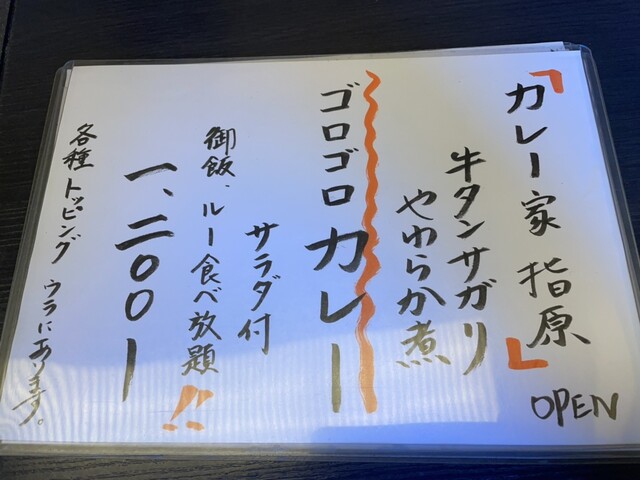 「カレー家 指原」
OPEN
牛タンサガリ
やわらか煮
ゴロゴロカレー
サラダ付
御飯、ルー食べ放題!!
一、二〇〇ー
各種トッピング ウラにあります。